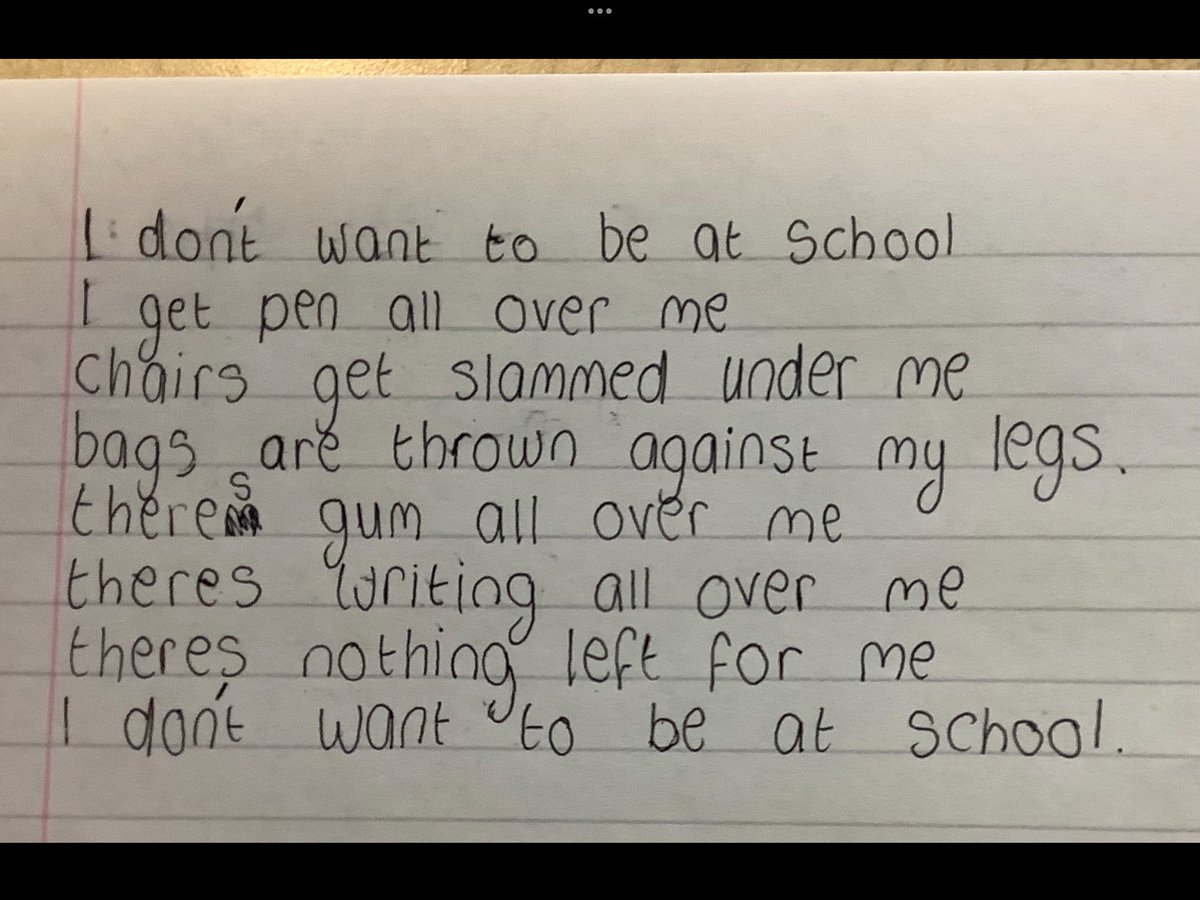 I don't want to be at school
I get pen all over me
chairs get slammed under me
bags are thrown against my legs.
theres gum all over me
theres writing all over me
theres nothing left for me
I don't want to be at school.